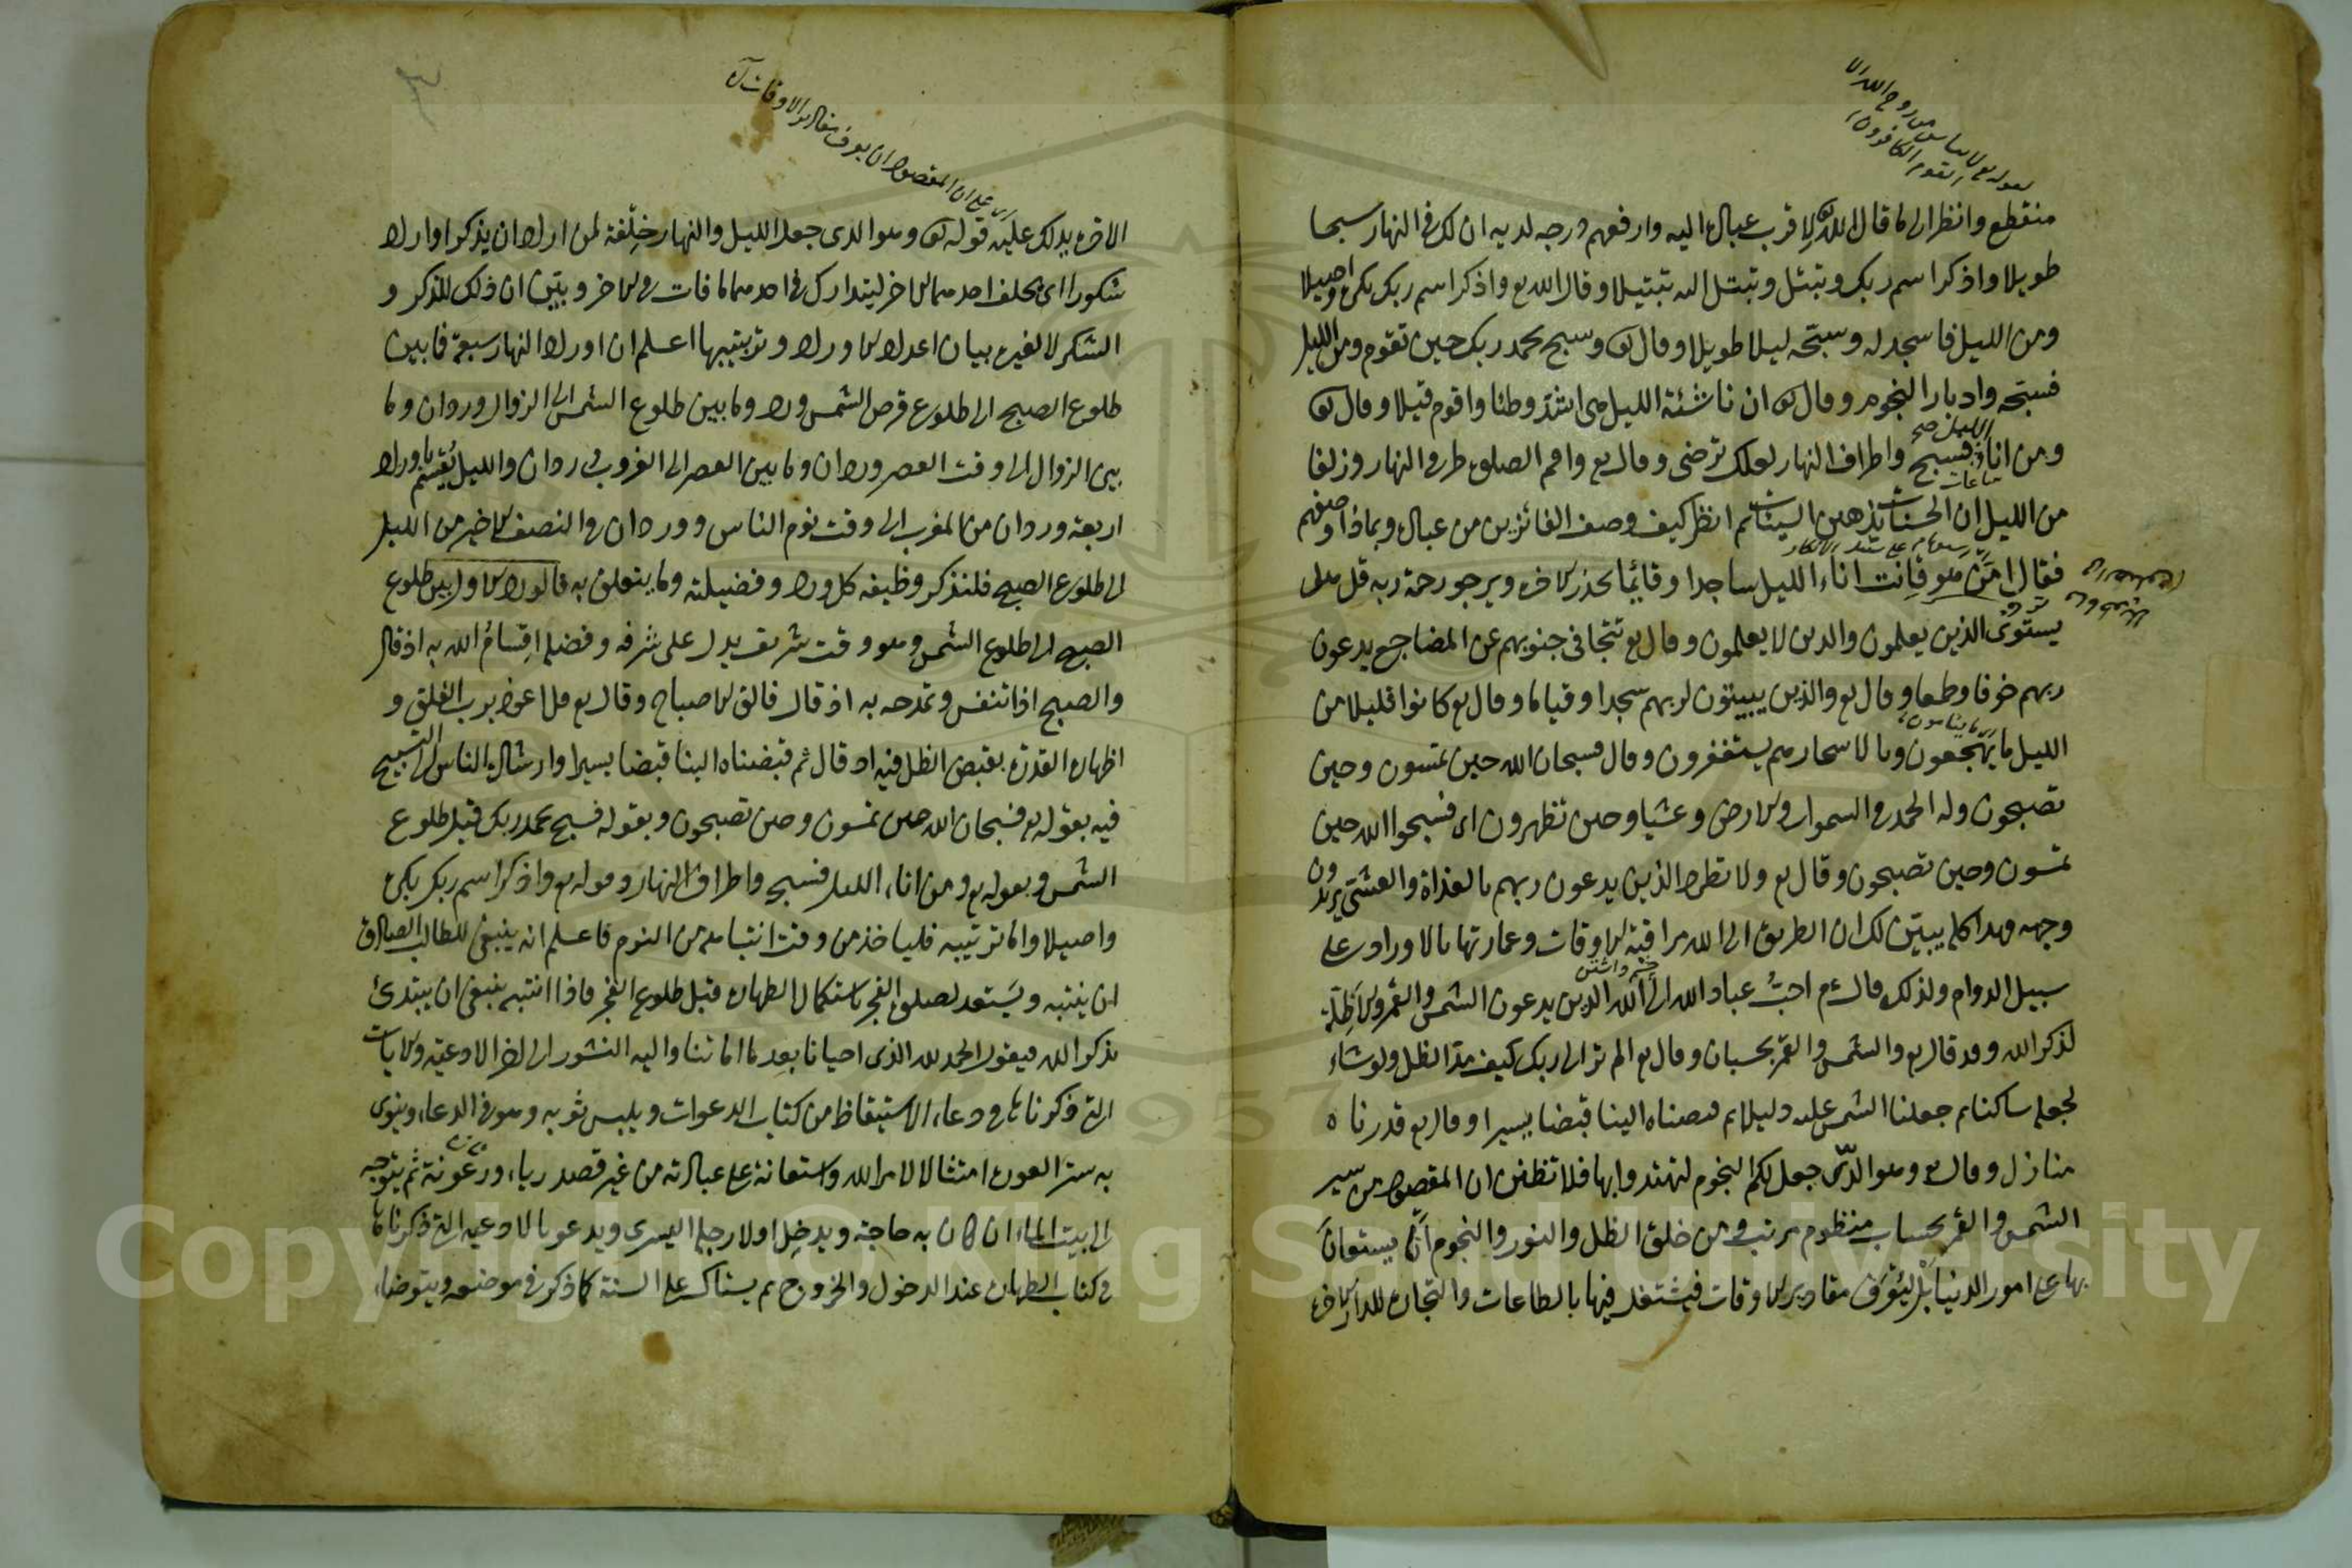 لقوله تع لا يياس من روح الله الا
القوم الكافرون
منقطع وانظر الى ما قال الله تع لاقرب عباده اليه وارفعهم درجه لديه ان لك في النهار سبحا
طويلا واذكر اسم ربك وتبتل وتبتل اليه تبتيلا وقال الله تع واذكر اسم ربك بكرة واصيلا
ومن الليل فاسجد له وسبحه ليلا طويلا وقال تع وسبح بحمد ربك حين تقوم ومن الليل
فسبحه وادبار النجوم وقال تع ان ناشئة الليل هي اشد وطئا واقوم قيلا وقال تع
ومن اناء الليل صح فسبح واطراف النهار لعلك ترضى وقال تع واقم الصلوة طرفي النهار وزلفا
ساعات
من الليل ان الحسنات يذهبن السيئات ثم انظر كيف وصف الفائزين من عباده وبماذا وصفهم
فقال امن هو قانت اناء الليل ساجدا وقائما يحذر الاخرة ويرجو رحمة ربه قل هل
يستوى الذين يعلمون والذين لا يعلمون وقال تع تتجافى جنوبهم عن المضاجع يدعون
ربهم خوفا وطمعا وقال تع والذين يبيتون لربهم سجدا وقياما وقال تع كانوا قليلا من
اى ما ينامون
الليل ما يهجعون وبالاسحار هم يستغفرون وقال فسبحان الله حين تمسون وحين
تصبحون وله الحمد في السموات والارض وعشيا وحين تظهرون اى فسبحوا الله حين
تمسون وحين تصبحون وقال تع ولا تطرد الذين يدعون ربهم بالغداة والعشى يريدون
وجهه وهذا كله يبين لك ان الطريق الى الله مراقبة الاوقات وعمارتها بالاوراد على
سبيل الدوام ولذلك قال عم احب عباد الله الى الله الذين يدعون الشمس والقمر والاظلة
لذكر الله وقد قال تع والشمس والقمر بحسبان وقال تع الم تر الى ربك كيف مد الظل ولو شاء
لجعله ساكنا ثم جعلنا الشمس عليه دليلا ثم قبضناه الينا قبضا يسيرا وقال تع قدرناه
منازل وقال تع وهو الذى جعل لكم النجوم لتهتدوا بها فلا تظنن ان المقصود من سير
الشمس والقمر بحساب منظوم مرتب ومن خلق الظل والنور والنجوم ان يستعان
بها على امور الدنيا بل ليعرف مقادير الاوقات فيشتغل فيها بالطاعات والتجارة للدار الاخرة
اى على ان المقصود ان يعرف مقادير الاوقات اه
الاخرة يدلك عليه قوله تع وهو الذى جعل الليل والنهار خلفة لمن اراد ان يذكر او اراد
شكورا اى يخلف احدهما الاخر ليتدارك في احدهما ما فات في الاخر وبين ان ذلك للذكر و
الشكر لا لغيره بيان اعداد الاوراد وترتيبها اعلم ان اوراد النهار سبعة فما بين
طلوع الصبح الى طلوع قرص الشمس ورد وما بين طلوع الشمس الى الزوال وردان وما
بين الزوال الى وقت العصر وردان وما بين العصر الى الغروب وردان والليل يقسم باوراد
اربعة وردان من المغرب الى وقت نوم الناس ووردان في النصف الاخير من الليل
الى طلوع الصبح فلنذكر وظيفة كل ورد وفضيلته وما يتعلق به فالورد الاول بين طلوع
الصبح الى طلوع الشمس وهو وقت شريف يدل على شرفه وفضله اقسام الله به اذ قال
والصبح اذا تنفس وتمدحه به اذ قال فالق الاصباح وقال تع قل اعوذ برب الفلق و
اظهاره القدرة بقبض الظل فيه اذ قال ثم قبضناه الينا قبضا يسيرا وارشاده الناس الى التسبيح
فيه بقوله تع فسبحان الله حين تمسون وحين تصبحون وبقوله فسبح بحمد ربك قبل طلوع
الشمس وبقوله تع ومن اناء الليل فسبح واطراف النهار وقوله تع واذكر اسم ربك بكرة
واصيلا واما ترتيبه فلياخذ من وقت انتباهه من النوم فاعلم انه ينبغى للطالب الصادق
ان ينتبه ويستعد لصلوة الفجر باستكمال الطهارة قبل طلوع الفجر فاذا انتبه ينبغى ان يبتدئ
بذكر الله فيقول الحمد لله الذى احيانا بعد ما اماتنا واليه النشور الى اخر الادعية والايات
التى ذكرناها في دعاء الاستيقاظ من كتاب الدعوات ويلبس ثوبه وهو في الدعاء وينوى
به ستر العورة امتثالا لامر الله واستعانة على عبادته من غير قصد رياء ورعونة ثم يتوجه
الى بيت الماء ان كان به حاجة ويدخل اولا رجله اليسرى ويدعو بالادعية التى ذكرناها
في كتاب الطهارة عند الدخول والخروج ثم يستاك على السنة كما ذكر في موضعه ويتوضاء
Copyright © King Saud University
1957